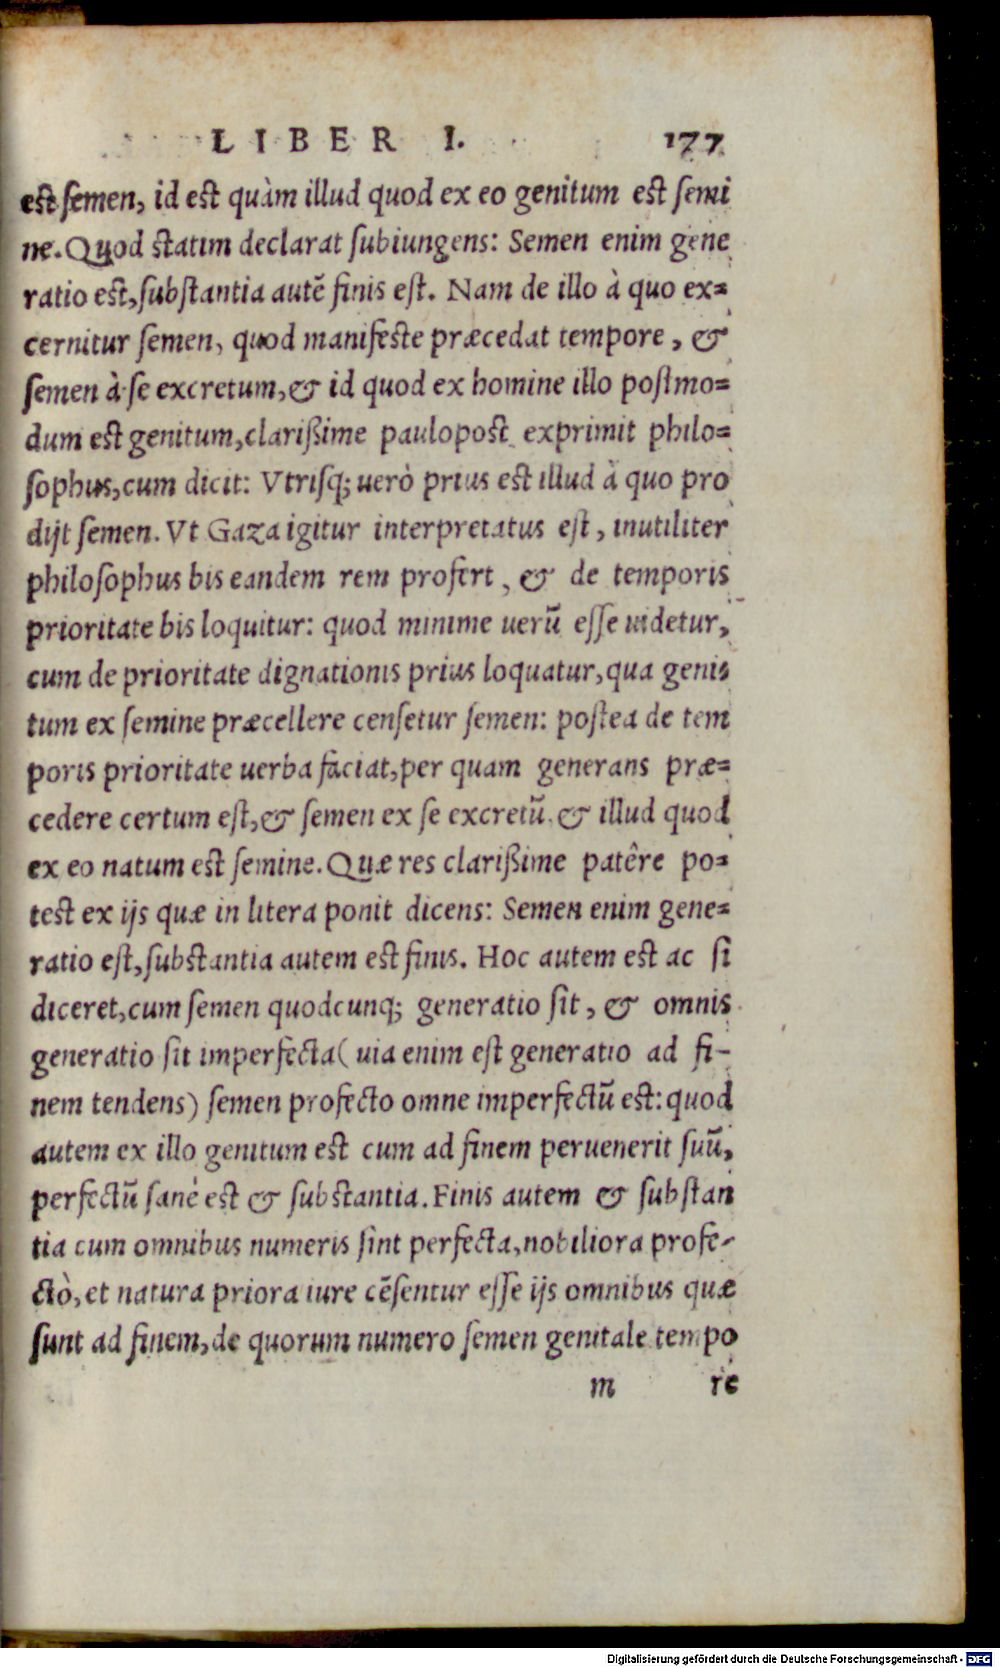 LIBER I. 177
est semen, id est quàm illud quod ex eo genitum est semi
ne. Quod statim declarat subiungens: Semen enim gene
ratio est, substantia autē finis est. Nam de illo à quo ex=
cernitur semen, quod manifeste præcedat tempore, &
semen à se excretum, & id quod ex homine illo postmo=
dum est genitum, clarißime paulopost exprimit philo=
sophus, cum dicit: Vtrisq; uerò prius est illud à quo pro
dijt semen. Vt Gaza igitur interpretatus est, inutiliter
philosophus bis eandem rem profert, & de temporis
prioritate bis loquitur: quod minime uerū esse uidetur,
cum de prioritate dignationis prius loquatur, qua genis
tum ex semine præcellere censetur semen: postea de tem
poris prioritate uerba faciat, per quam generans præ=
cedere certum est, & semen ex se excretū & illud quod
ex eo natum est semine. Quæ res clarißime patêre po=
test ex ijs quæ in litera ponit dicens: Semen enim gene=
ratio est, substantia autem est finis. Hoc autem est ac si
diceret, cum semen quodcunq; generatio sit, & omnis
generatio sit imperfecta (uia enim est generatio ad fi-
nem tendens) semen profecto omne imperfectū est: quod
autem ex illo genitum est cum ad finem peruenerit suū,
perfectū sanè est & substantia. Finis autem & substan
tia cum omnibus numeris sint perfecta, nobiliora profe-
ctò, et natura priora iure cēsentur esse ijs omnibus quæ
sunt ad finem, de quorum numero semen genitale tempo
m re
Digitalisierung gefördert durch die Deutsche Forschungsgemeinschaft - DFG